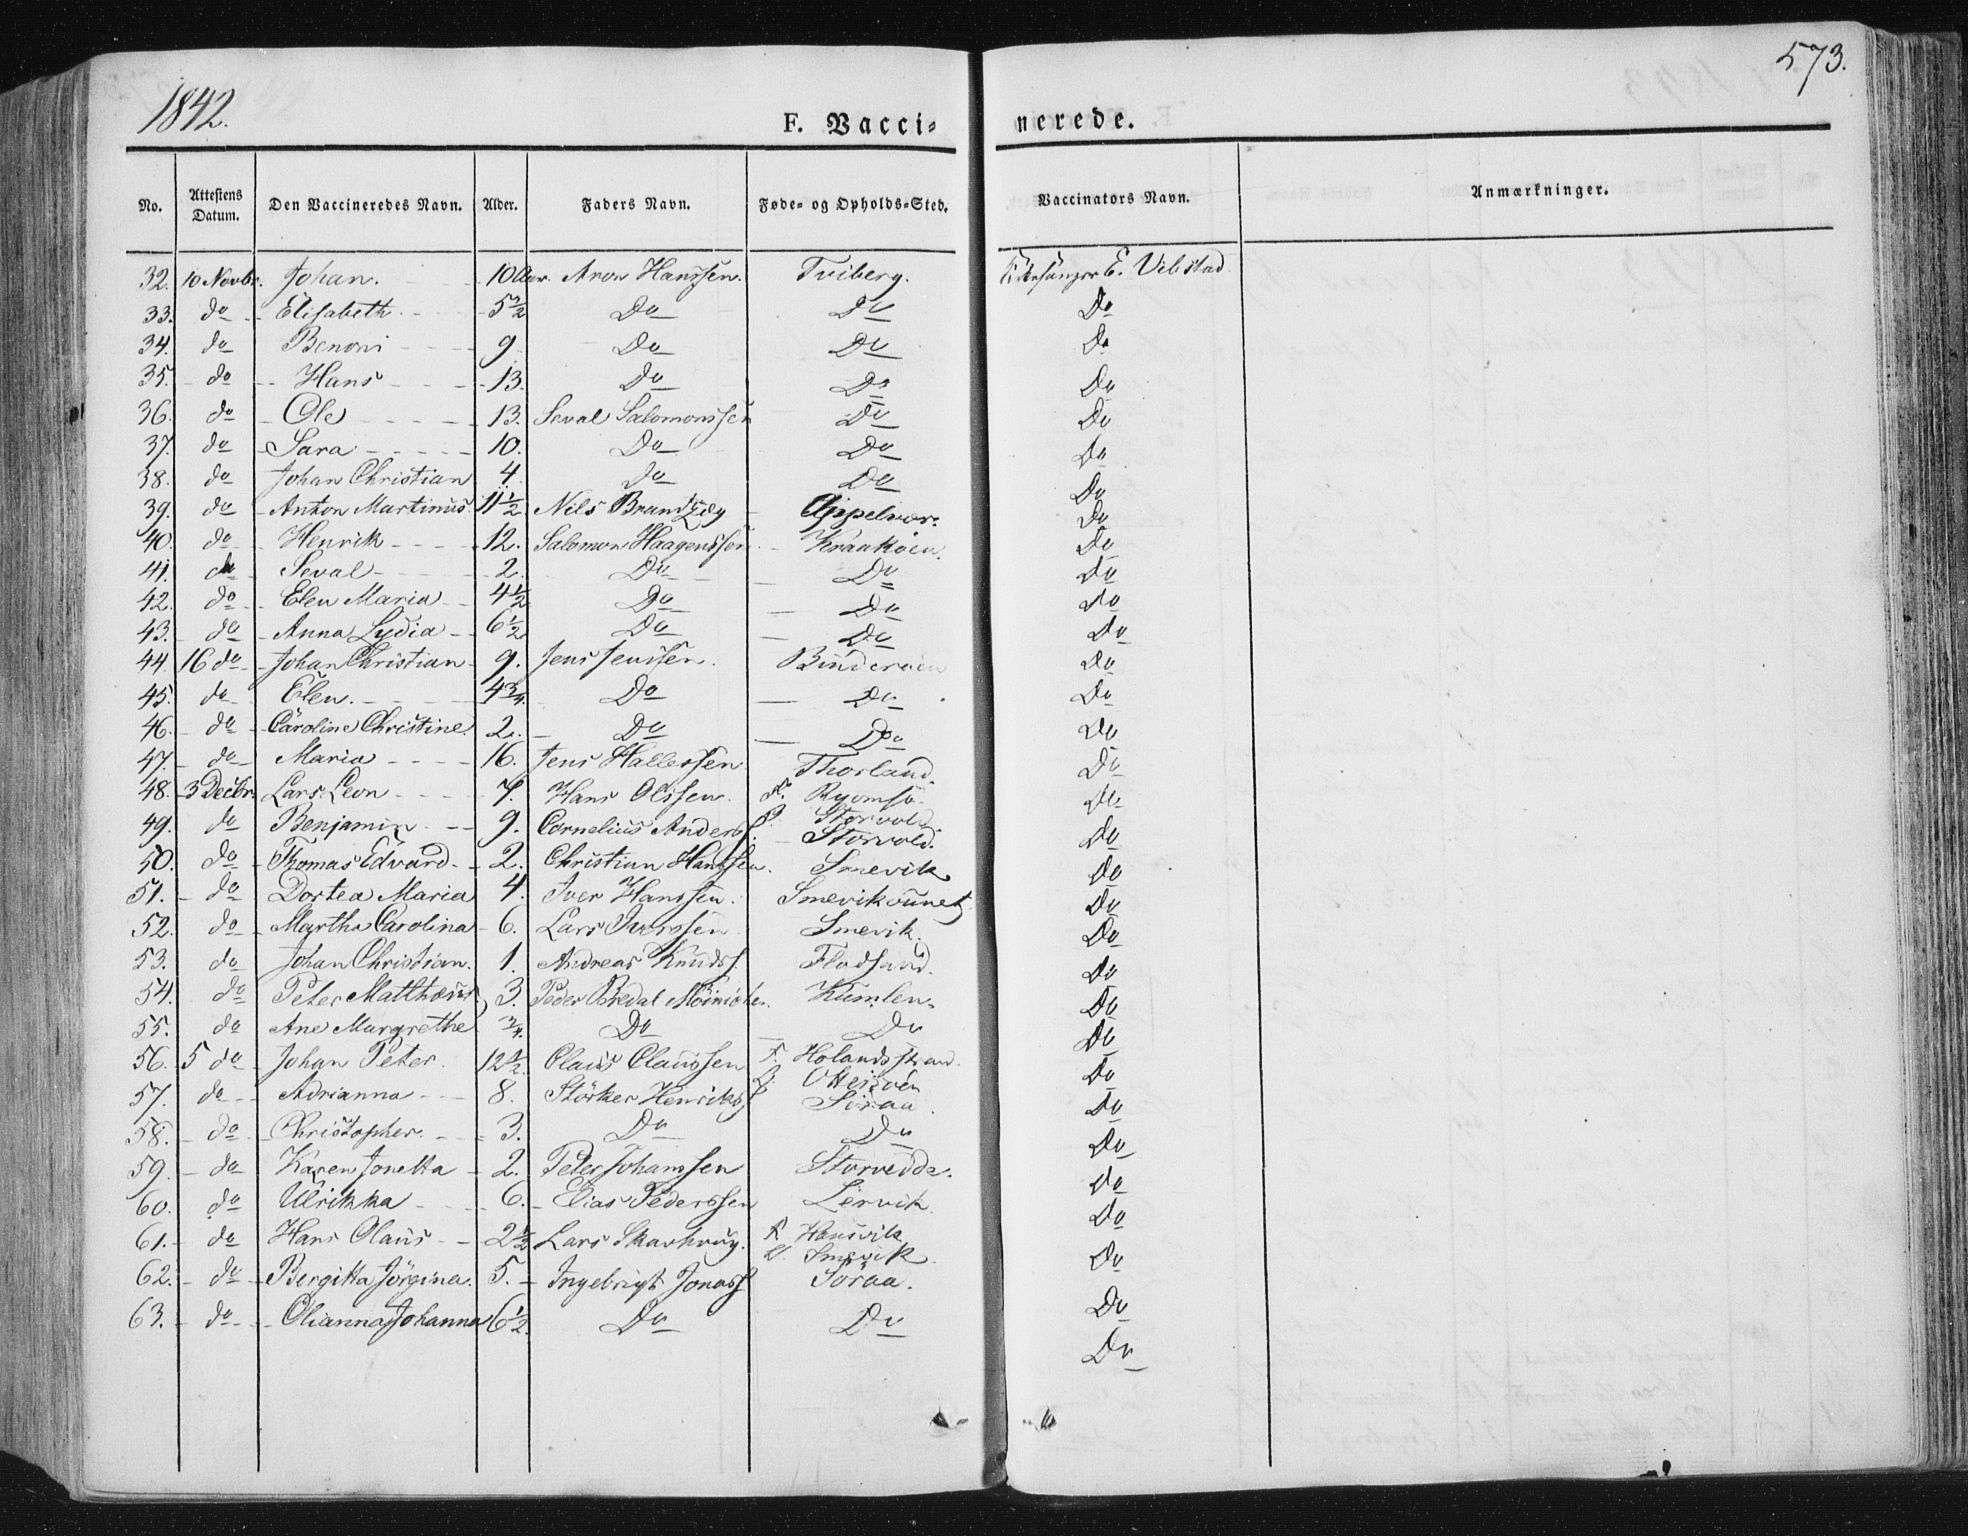 1842.
573.
F. Vacci=
nerede.
No. Attestens Datum. Den Vaccineredes Navn. Alder. Faders Navn. Føde= og Opholds=Sted. Vaccinators Navn. Anmærkninger.
32. 10 Novbr. Johan. 10 Aar. Aron Hanssen. Tviberg. Kirkesanger E. Vibstad
33. do Elisabeth 5 1/2 Do Do Do
34. do Benoni 9 Do Do Do
35. do Hans 13. Do Do Do
36. do Ole 13. Seval Salomonssen Do Do
37. do Sara 10. Do Do Do
38. do Johan Christian 4. Do Do Do
39. do Anton Martinus 11 1/2 Nils Brandtzæg Appelvær. Do
40. do Henrik 12. Salomon Haagenssen Kraakøen. Do
41. do Seval 2. Do Do Do
42. do Elen Maria 4 1/2 Do Do Do
43. do Anna Lydia 6 1/2 Do Do Do
44. 16 do Johan Christian 9. Jens Jenssen. Binderøen Do
45. do Elen. 4 3/4 Do Do Do
46. do Caroline Christine 2. Do Do Do
47. do Maria 16. Jens Hallessen Thorland. Do
48. 3 Decbr. Lars Leon 7. Hans Olssen. F. Ryomsø. O. Storvold Do
49. do Benjamin 9. Cornelius Anderss. Storvold. Do
50. do Thomas Edvard 2. Christian Hanssen. Smevik Do
51. do Dortea Maria 4. Iver Hanssen. Smevikvunet Do
52. do Martha Carolina 6. Lars Iverssen Smevik. Do
53. do Johan Christian. 1. Andreas Knudss. Flodsand. Do
54. do Peter Mathæus 3. Peder Bredal Möinichen. Kumlen. Do
55. do Ane Margrethe 3/4. Do Do Do
56. 5 do Johan Peter. 12 1/2 Claus Claussen F. Holandsstrand. O. Otterøen Do
57. do Adrianna 8. Störker Henrikss Söraa. Do
58. do Christopher. 3. Do Do Do
59. do Karen Jonetta 2. Peter Johanssen Storvedde. Do
60. do Ulrikka 6. Elias Pederssen Lervik Do
61. do Hans Olaus 2 1/2 Lars Skavhaug. F. Hansvik O. Smevik Do
62. do Bergitta Jörgina. 5. Ingebrigt Jonass Söraa. Do
63. do Olianna Johanna 6 1/2. Do Do Do
Do